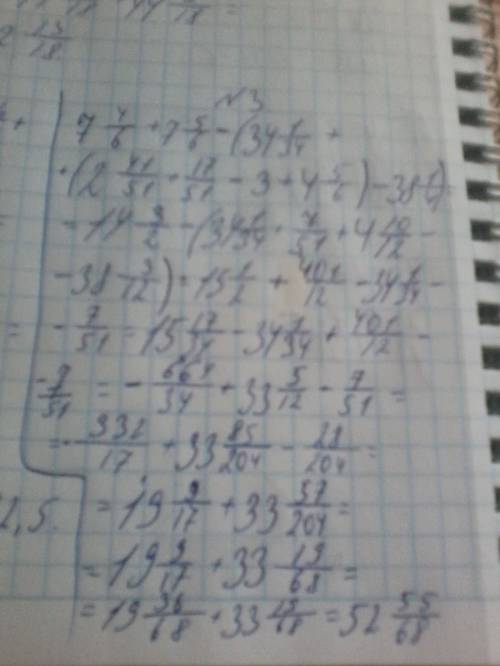 №3
7 4/6 + 7 5/6 - (34 1/34 +
+ (2 41/51 + 17/51 - 3 + 4 5/6) - 38 1/4) =
= 14 9/6 - (34 1/34 + 7/51 + 4 10/12 -
- 38 3/12) = 15 1/2 + 401/12 - 34 1/34 -
- 7/51 = 15 17/34 - 34 1/34 + 401/12 -
- 7/51 = - 664/34 + 33 5/12 - 7/51 =
= - 332/17 + 33 85/204 - 28/204 =
= 19 9/17 + 33 57/204 =
= 19 9/17 + 33 19/68 =
= 19 36/68 + 33 19/68 = 52 55/68
2,5.